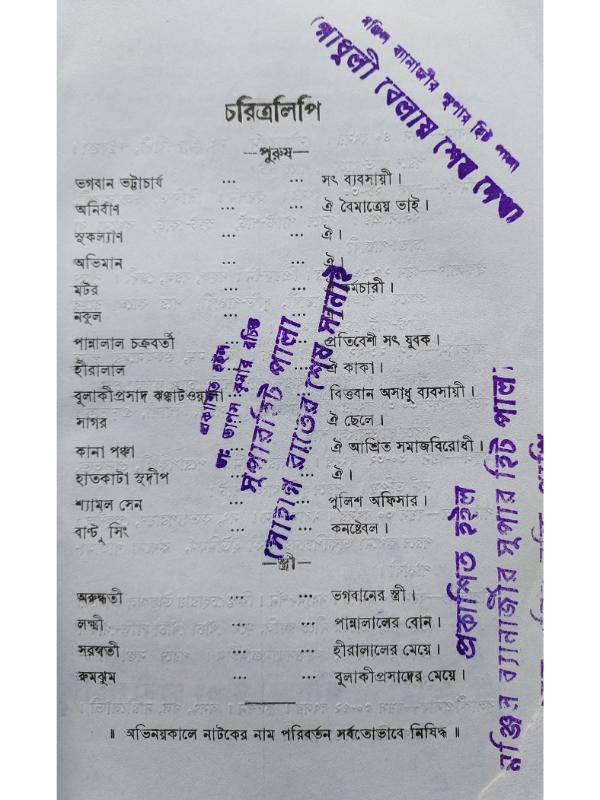 চরিত্রলিপি
—পুরুষ—
ভগবান ভট্টাচার্য ... ... সৎ ব্যবসায়ী।
অনির্বাণ ... ... ঐ বৈমাত্রেয় ভাই।
সুকল্যাণ ... ... ঐ।
অভিমান ... ... ঐ।
মটর ... ... কর্মচারী।
নকুল ... ...
পান্নালাল চক্রবর্তী ... প্রতিবেশী সৎ যুবক।
হীরালাল ... ঐ কাকা।
বুলাকীপ্রসাদ ঝঞ্ঝাটওয়ালা বিত্তবান অসাধু ব্যবসায়ী।
সাগর ... ঐ ছেলে।
কানা পঞ্চা ঐ আশ্রিত সমাজবিরোধী।
হাতকাটা সুদীপ ঐ।
শ্যামল সেন ... পুলিশ অফিসার।
বাণ্টু সিং ... কনষ্টেবল।
—স্ত্রী—
অরুন্ধতী ... ... ভগবানের স্ত্রী।
লক্ষ্মী ... ... পান্নালালের বোন।
সরস্বতী ... ... হীরালালের মেয়ে।
রুমঝুম ... ... বুলাকীপ্রসাদের মেয়ে।
॥ অভিনয়কালে নাটকের নাম পরিবর্তন সর্বতোভাবে নিষিদ্ধ ॥
মঞ্জিল ব্যানার্জীর সুপার হিট পালা
গোধুলী বেলায় শেষ দেখা
প্রকাশিত হইল
ডাঃ তাপস কুমার রচিত
সুপারহিট পালা
সোহাগ রাতের শেষ সানাই
প্রকাশিত হইল
মঞ্জিল ব্যানার্জীর সুপার হিট পালা